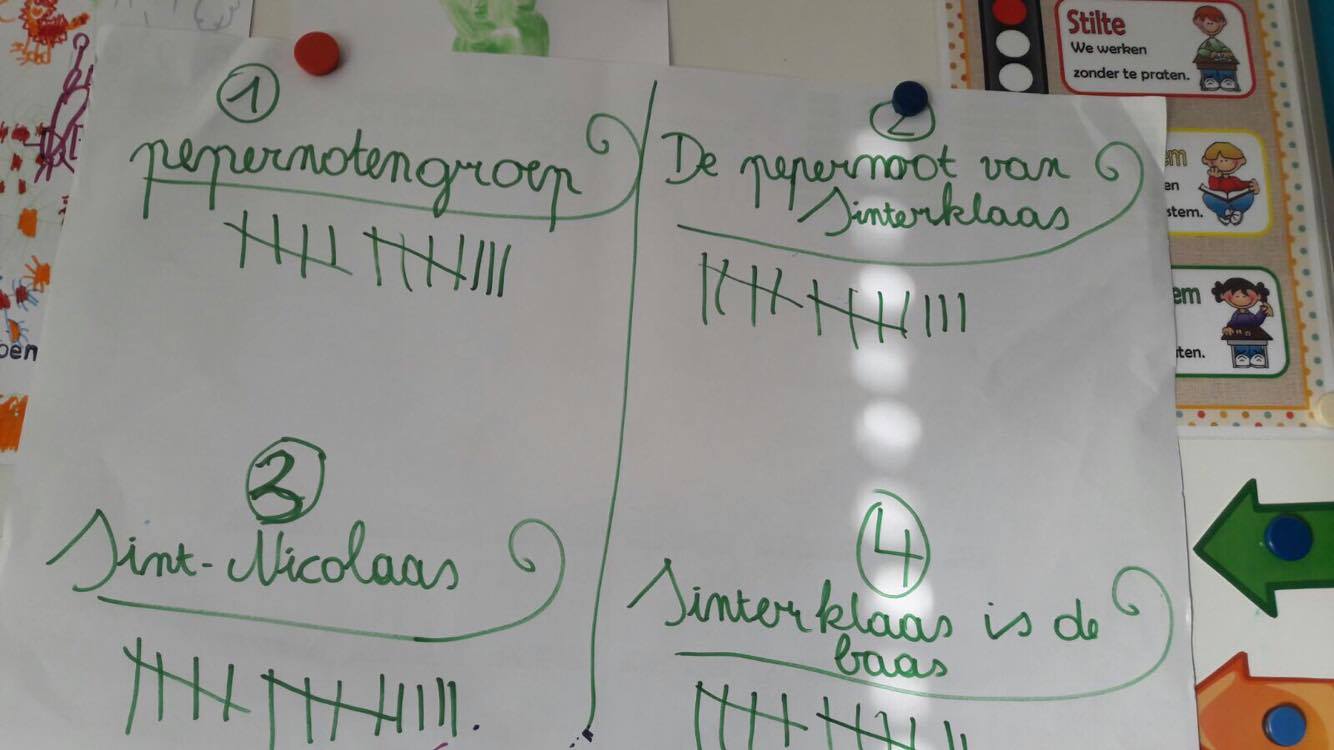 1
pepernotengroep
2
De pepernoot van
Sinterklaas
3
Sint-Nicolaas
4
Sinterklaas is de
baas
Stilte
We werken
zonder te praten.
em
en
stem.
em
ten.
oen